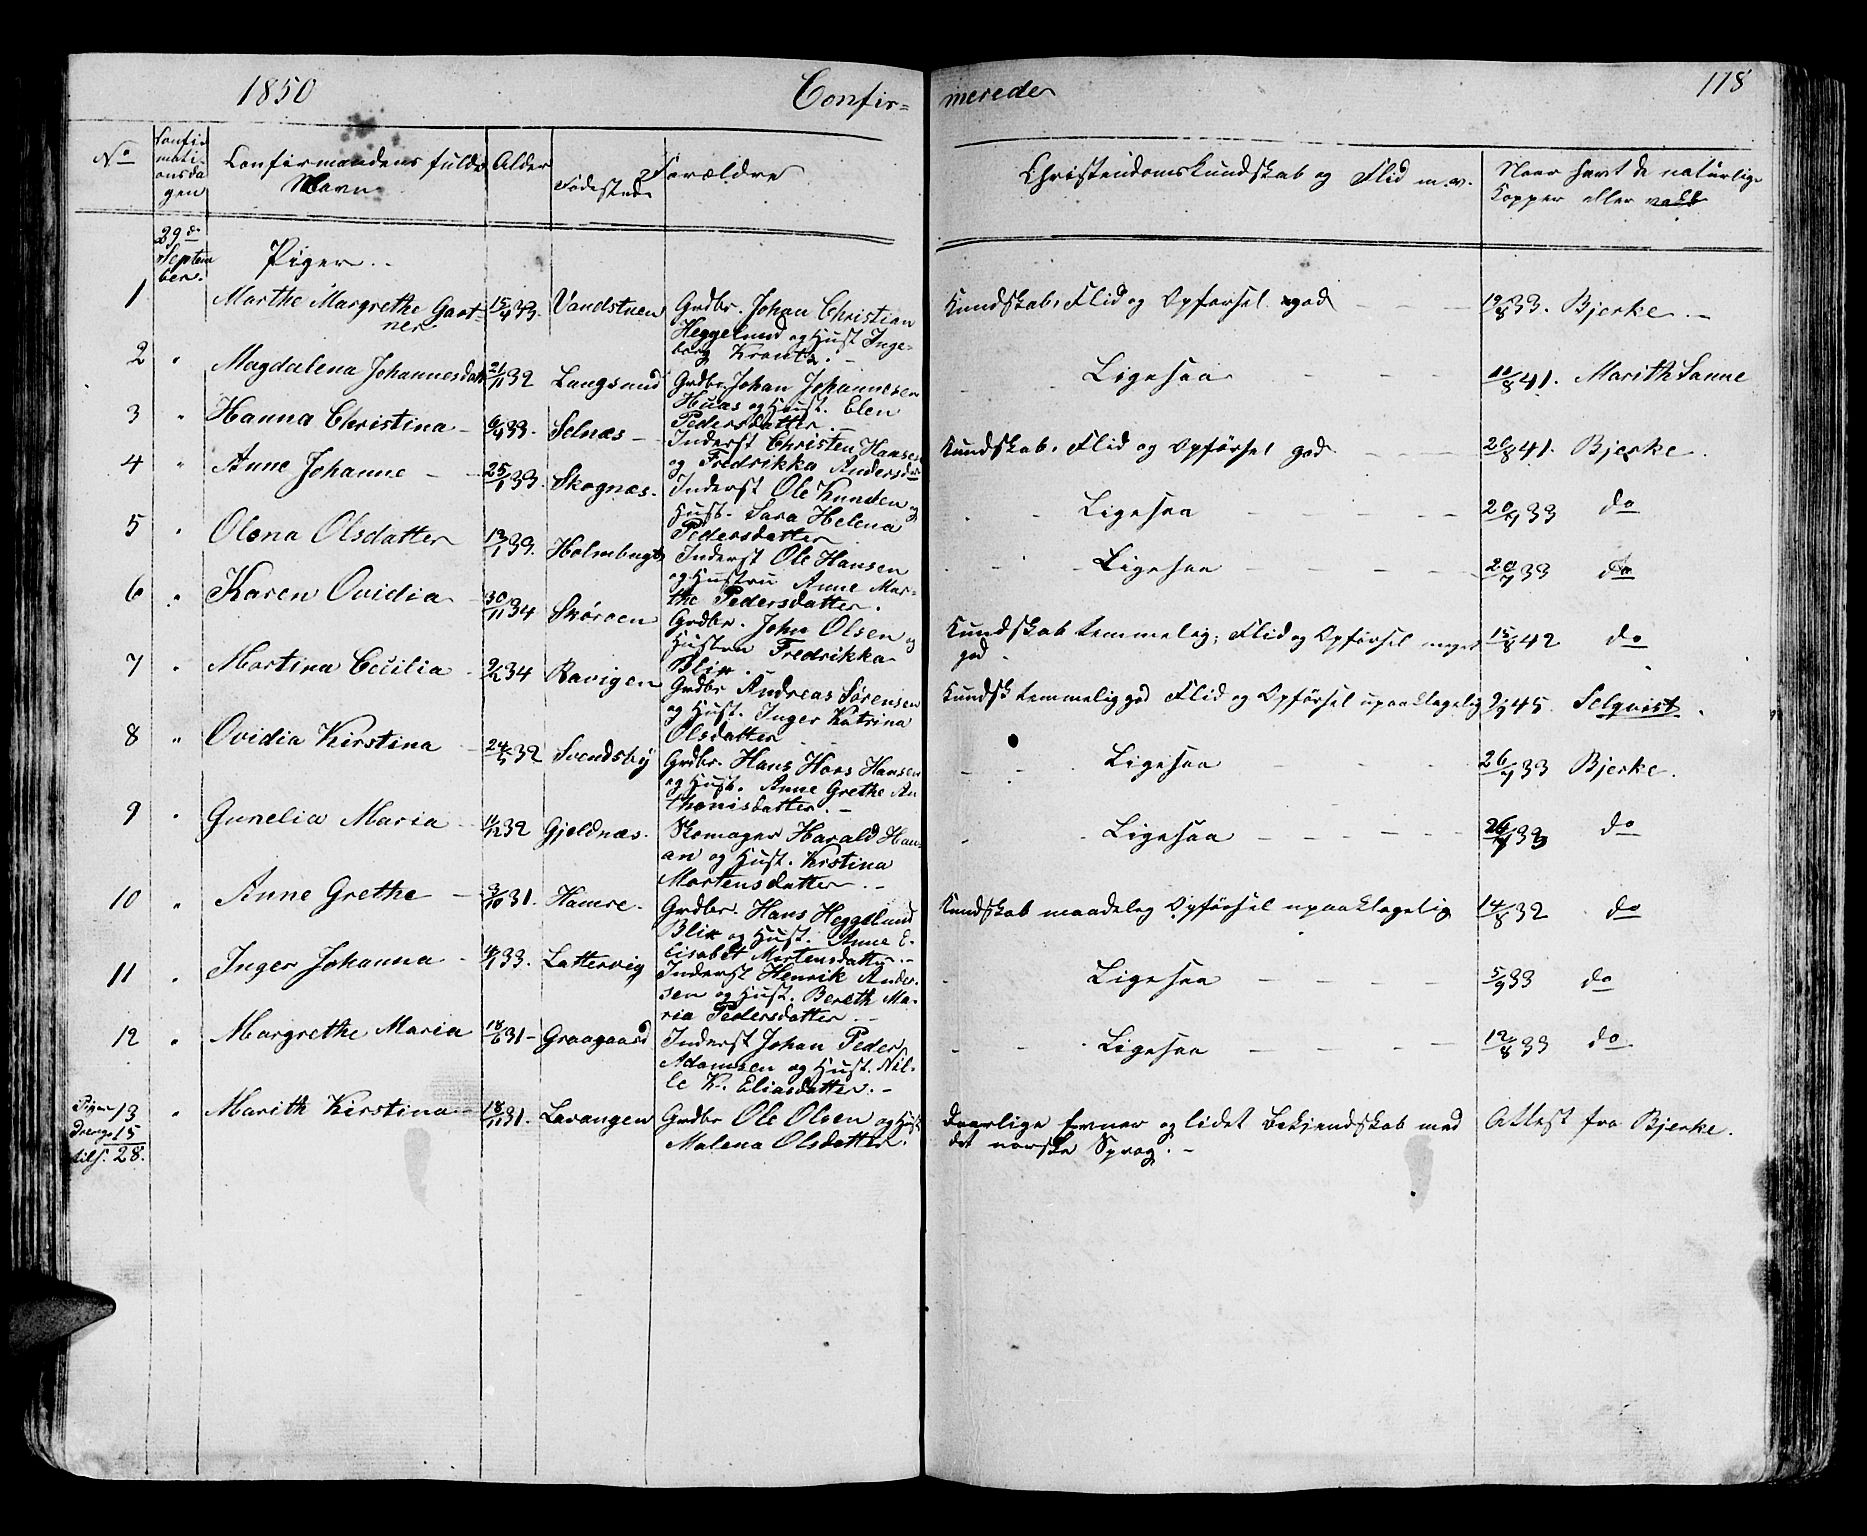 1850 Confir= merede 118
No Confirmationsdagen Confirmandens fulde Navn Alder Fødested Forældre Christendomskundskab og Flid m.v. Naar havt de naturlige Kopper eller vakt
29de September Piger
1 Marthe Margrethe Gartner 15/4 33. Vandstuen Grdbr. Johan Christian Kundskab, Flid og Opførsel god 19/8 33. Bjerke
Heggelund og Hust Inge=
borg Krantz.
2 " Magdalena Johannesdatt 21/11 32 Langsund Grdbr. Johan Johannesen Ligesaa 10/8 41. Marith Sanne
og Hust. Elen
Pedersdatter
3 " Hanna Christina 6/4 33. Selnæs Inderst Christen Hansen Kundskab, Flid og Opførsel god 26/8 41. Bjerke.
og Fredrikka Andersd
4 " Anne Johanne 25/1 33. Skognæs. Inderst Ole Knudsen og Ligesaa 20/9 33 do
Hust. Sara Helena
Pedersdatter
5 " Olena Olsdatter 13/1 33. Holmbugt Inderst Ole Hansen Ligesaa 20/7 33 do
og Hustru Anne Mar=
the Pedersdatter.
6 " Karen Ovidia 30/11 34 Skøroen Grdbr. John Olsen og Kundskab temmelig; Flid og Opførsel meget god 15/8 42 do
Hustru Fredrikka
Blix
7 " Martina Cecilia 2/2 34 Ravigen Grdbr Andreas Sørensen Kundsk temmelig god Flid og Opførsel upaaklagelig 2/9 45 Selqvist.
og Hust. Inger Katrina
Olsdatter
8 " Ovidia Kirstina 24/5 32 Svendsby Grdbr. Hans Hans Hansen Ligesaa 26/9 33 Bjerke.
og Hust. Anne Grethe An
thonisdatter.
9 " Gunelia Maria 11/12 32 Gjeldnæs. Skomager Harald Han= Ligesaa 26/9 33 do
sen og Hust. Kirstina
Mortensdatter
10 " Anne Grethe 3/10 31. Hamre. Grdbr. Hans Heggelund Kundskab maadelig Opførsel upaaklagelig 14/8 32 do
Blix og Hust. Anne E=
lisabet Mortensdatter.
11 " Inger Johanna 4/1 33. Lattervig Inderst Henrik Ander= Ligesaa 5/9 33 do
sen og Hust. Bereth Ma=
ria Pedersdatter.
12 " Margrethe Maria 18/6 31 Graagaard Inderst Johan Peder Ligesaa 12/8 33 do.
Adamsen og Hust. Nil=
le K. Eliasdatter.
Piger 13 " Marith Kirstina 18/11 31. Lavangen Grdbr Ole Olsen og Hust Daarlige Evner og lidet Bekjendskab med Attest fra Bjerke.
Drenge 15 Malena Olsdatter. det norske Sprog.
tils. 28.